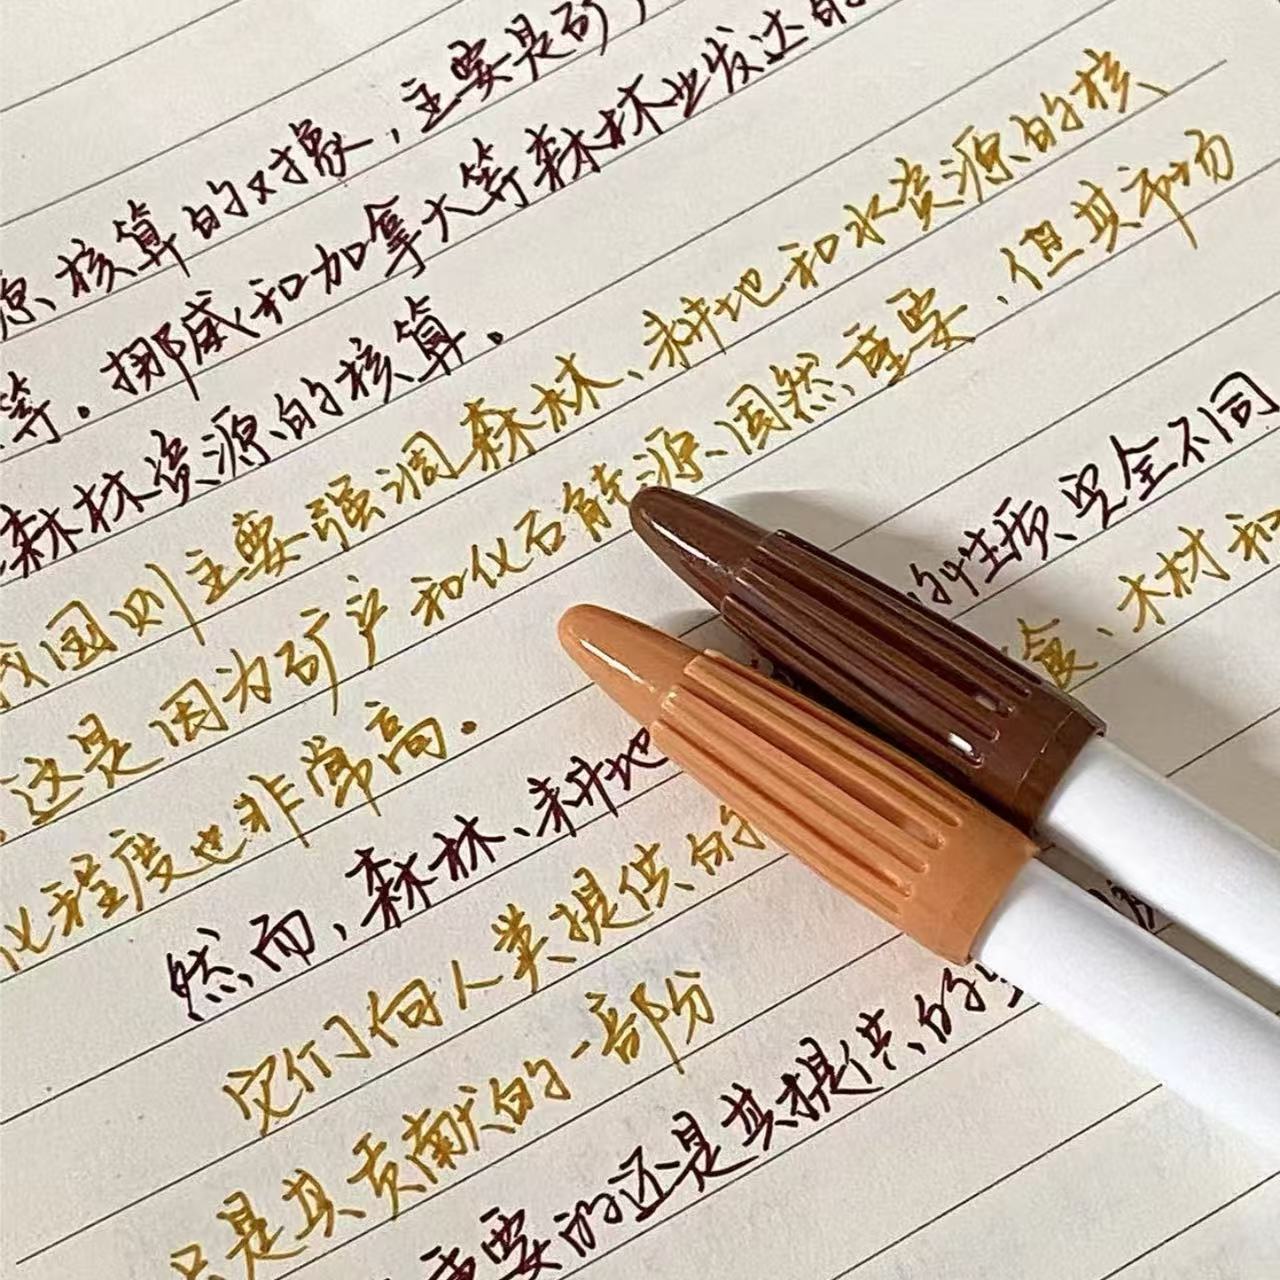 源核算的对象，主要是矿
等。挪威和加拿大等森林业发达的
森林资源的核算。
我国则主要强调森林、耕地和水资源的核
这是因为矿产和化石能源固然重要，但其市场
化程度也非常高。
然而，森林、耕地 的性质完全不同
它们向人类提供的 食、木材和
只是其贡献的一部份
重要的还是其提供的